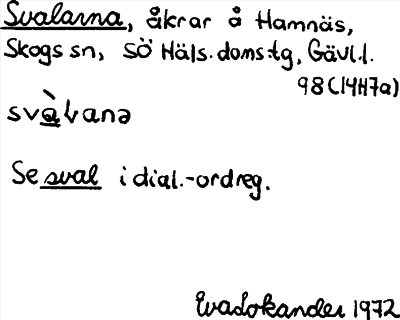 Svalarna, åkrar å Hamnäs,
Skogs sn, SÖ Häls. doms:tg, Gävl.l.
98 (14H7a)
svàLanə
Se sval i dial.-ordreg.
1972